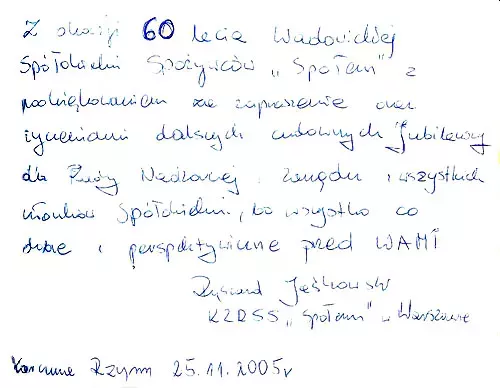 Z okazji 60 lecia Wadowickiej
Spółdzielni Spożywców „Społem" z
podziękowaniem za zaproszenie oraz
życzeniami dalszych cudownych Jubileuszy
dla Rady Nadzorczej, Zarządu i wszystkich
członków Spółdzielni, bo wszystko co
dobre i perspektywiczne przed WAMI
Ryszard Jaśkowski
KZRSS „Społem" w Warszawie
Rzym 25.11.2005r